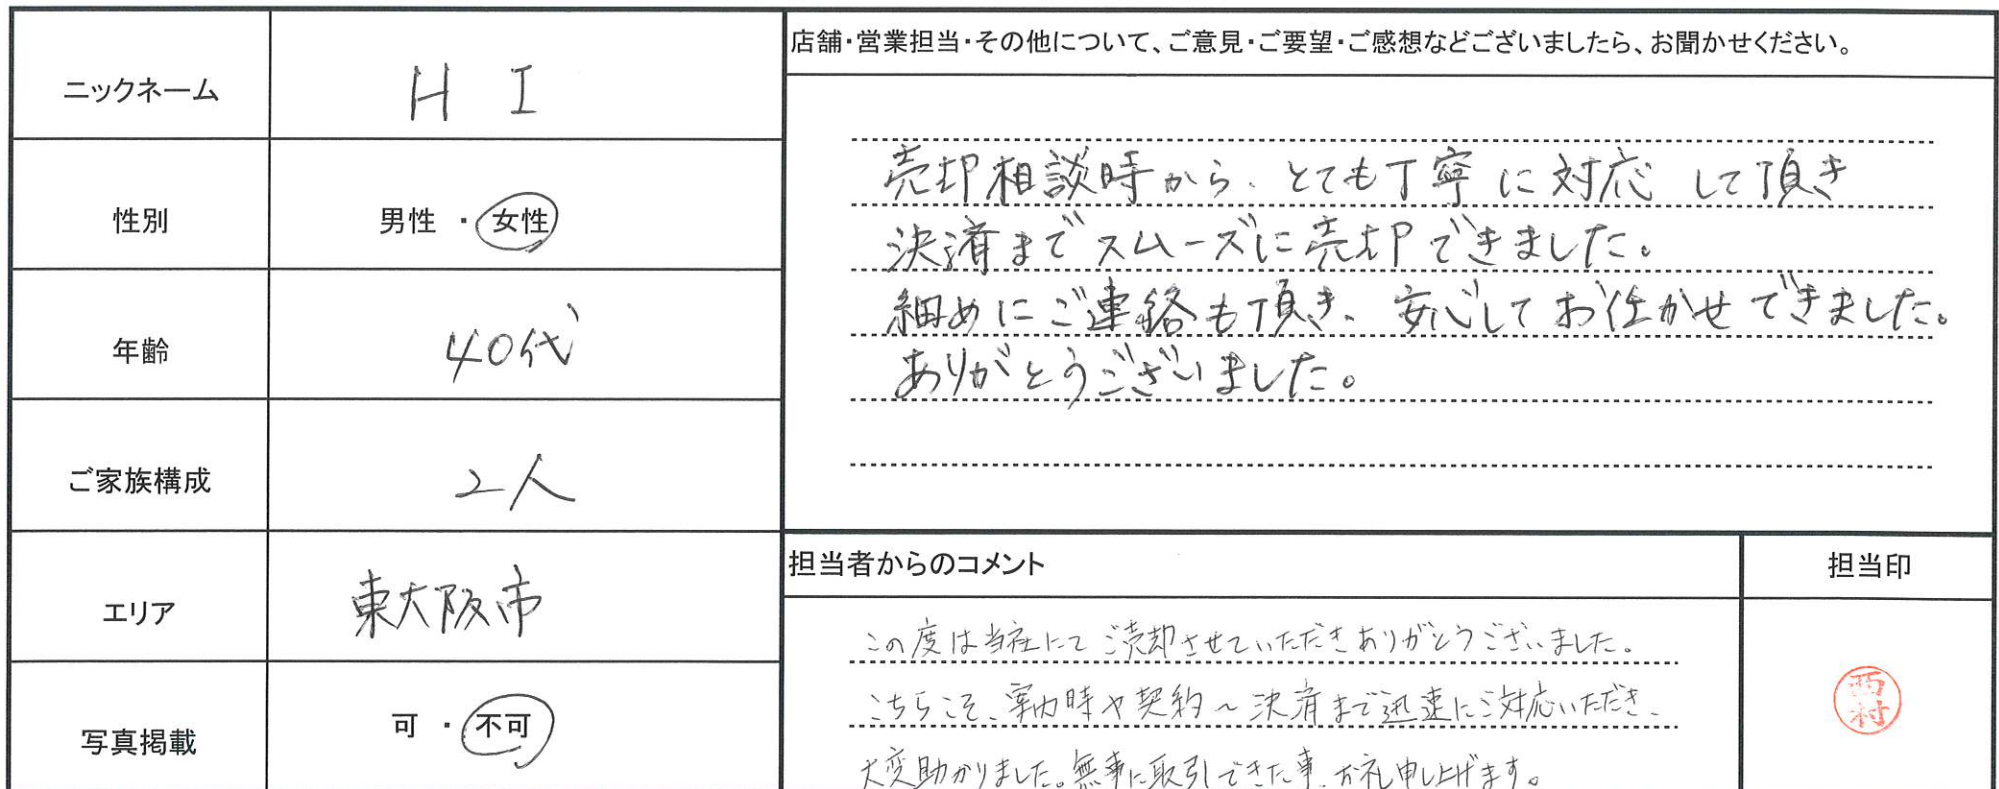 ニックネーム
H I
性別
男性 ・ 女性
年齢
40代
ご家族構成
2人
エリア
東大阪市
写真掲載
可 ・ 不可
店舗・営業担当・その他について、ご意見・ご要望・ご感想などございましたら、お聞かせください。
売却相談時から、とても丁寧に対応して頂き
決済までスムーズに売却できました。
細めにご連絡も頂き、安心してお任かせできました。
ありがとうございました。
担当者からのコメント
この度は当社にてご売却させていただきありがとうございました。
こちらこそ、案内時や契約〜決済まで迅速にご対応いただき、
大変助かりました。無事に取引できた事、お礼申し上げます。
担当印
西村